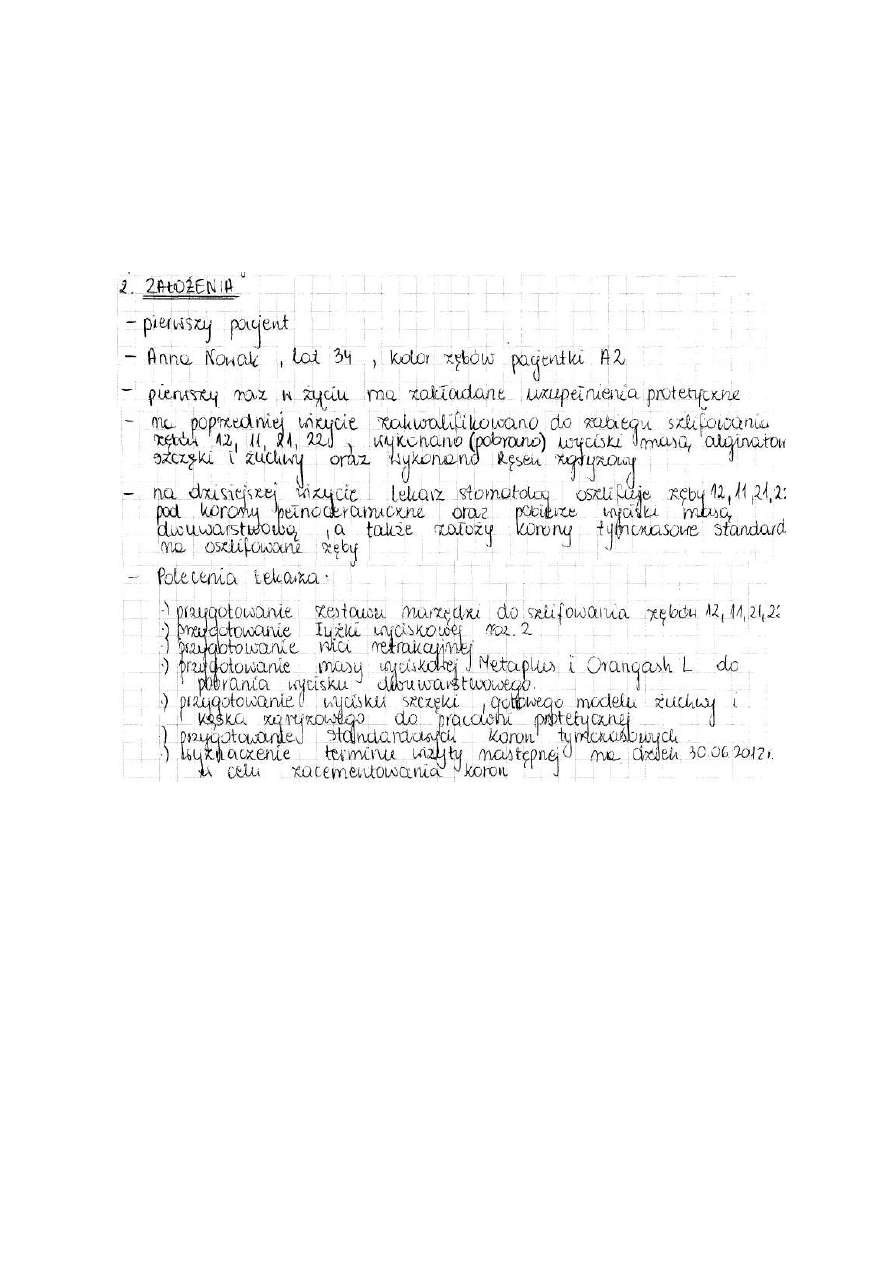 2. ZAŁOŻENIA
- pierwszy pacjent
- Anna Nowak, lat 34, kolor zębów pacjentki A2
- pierwszy raz w życiu ma zakładane uzupełnienia protetyczne
- na poprzedniej wizycie zakwalifikowano do zabiegu szlifowania
zębów 12, 11, 21, 22, wykonano (pobrano) wyciski masą alginatow
szczęki i żuchwy oraz wykonano kęsek zgryzowy
- na dzisiejszej wizycie lekarz stomatolog oszlifuje zęby 12, 11, 21, 2
pod korony pełnoceramiczne oraz pobierze wyciski masą
dwuwarstwową, a także założy korony tymczasowe standard
na oszlifowane zęby
- Polecenia lekarza:
·) przygotowanie zestawu narzędzi do szlifowania zębów 12, 11, 21, 22
·) przygotowanie łyżki wyciskowej roz. 2
·) przygotowanie nici retrakcyjnej
·) przygotowanie masy wyciskowej Metaplus i Orangash L do
pobrania wycisku dwuwarstwowego.
·) przygotowanie wycisku szczęki, gotowego modelu żuchwy i
kęska zgryzowego do pracowni protetycznej
·) przygotowanie standardowych koron tymczasowych
·) wyznaczenie terminu wizyty następnej na dzień 30.06.2012r.
w celu zacementowania koron